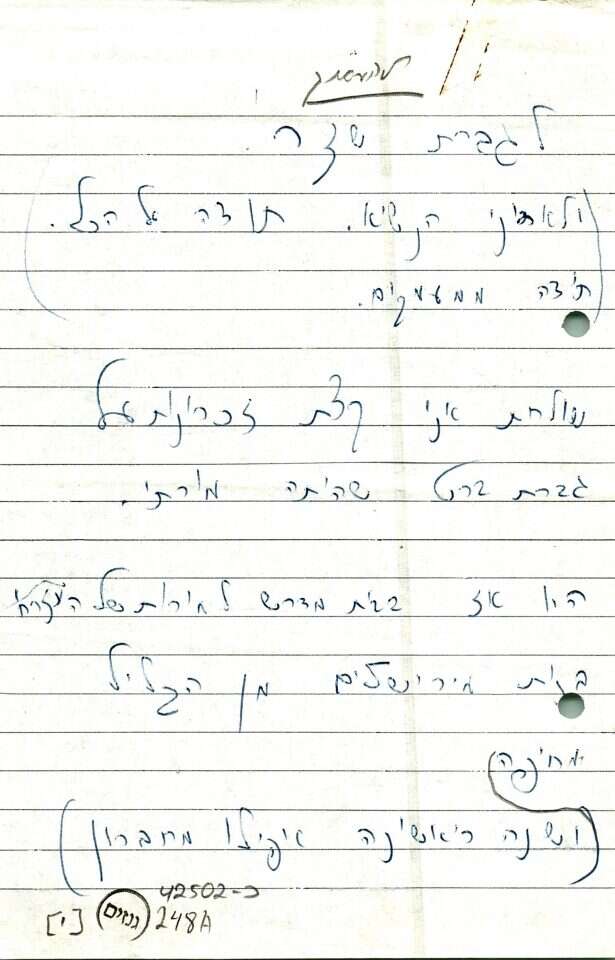 להעתיק
לגברת שזר.
(ולאדוני הנשיא. תודה על הכל.
תודה ממעמקים.)
שולחת אני קצת זכרונות על
גברת ברט שהיתה מורתי.
היו אז בבית מדרש למורות של העזרה
בנות מירושלים מן הגליל
מחיפה
(ושנה ראשונה אפילו מחברון)
42502-כ
248A
גנזים
[י]